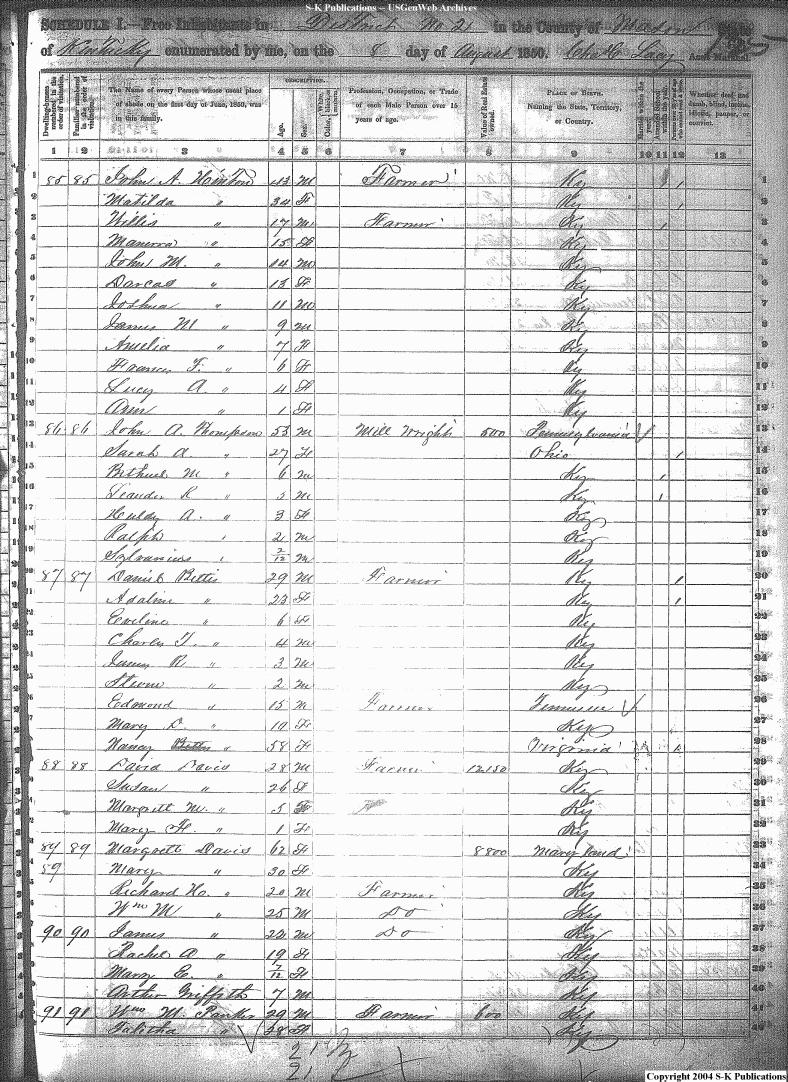 S-K Publications -- USGenWeb Archives
SCHEDULE I.—Free Inhabitants in District No 2 in the County of State
of Kentucky enumerated by me, on the 8 day of August 1850. Chas C. Lacy Ass't Marshal.
Dwelling-houses numbered in the order of visitation.
Families numbered in the order of visitation.
The Name of every Person whose usual place of abode on the first day of June, 1850, was in this family.
DESCRIPTION.
Age.
Sex.
Color, White, black, or mulatto.
Profession, Occupation, or Trade of each Male Person over 15 years of age.
Value of Real Estate owned.
PLACE OF BIRTH. Naming the State, Territory, or Country.
Married within the year.
Attended School within the year.
Persons over 20 y'rs of age who cannot read & write.
Whether deaf and dumb, blind, insane, idiotic, pauper, or convict.
1 2 3 4 5 6 7 8 9 10 11 12 13
1 85 85 John A. Hinton 43 M Farmer Ky 1
2 Matilda " 34 F Ky 2
3 Willis " 17 M Farmer Ky 3
4 " 15 F Ky 4
5 John M. " 14 M Ky 5
6 Darcas " 13 F Ky 6
7 Joshua " 11 M Ky 7
8 James M " 9 M Ky 8
9 Amelia " 7 F Ky 9
10 Frances F. " 6 F Ky 10
11 Lucy A. " 4 F Ky 11
12 Ann " 1 F Ky 12
13 86 86 John A. Thompson 53 M Mill Wright 500 Pennsylvania 13
14 Sarah A " 27 F Ohio 14
15 Bethuel M " 6 M Ky 15
16 Leander R " 5 M Ky 16
17 Huldy A. " 3 F Ky 17
18 Ralph " 2 M Ky 18
19 Sylvanius " 2/12 M Ky 19
20 87 87 Daniel Bettis 29 M Farmer Ky 20
21 Adaline " 23 F Ky 21
22 Eveline " 6 F Ky 22
23 Charles T. " 4 M Ky 23
24 James R " 3 M Ky 24
25 " 2 M Ky 25
26 Edmond " 15 M Farmer Tennessee 26
27 Mary D. " 19 F Ky 27
28 Nancy Bettis " 58 F Virginia 28
29 88 88 David Davis 28 M Farmer 12150 Ky 29
30 Susan " 26 F Ky 30
31 Margrett M. " 5 F Ky 31
32 Mary F. " 1 F Ky 32
33 89 89 Margrett Davis 62 F 8800 Maryland 33
34 89 Mary " 30 F Ky 34
35 Richard H. " 20 M Farmer Ky 35
36 Wm M " 25 M Do Ky 36
37 90 90 James " 22 M Do Ky 37
38 Rachel A " 19 F Ky 38
39 Mary E. " 7/12 F Ky 39
40 Arthur Griffith 7 M Ky 40
41 91 91 Wm M. Parker 29 M Farmer 600 Ky 41
42 Talitha " 28 F Ky 42
21
21
Copyright 2004 S-K Publications